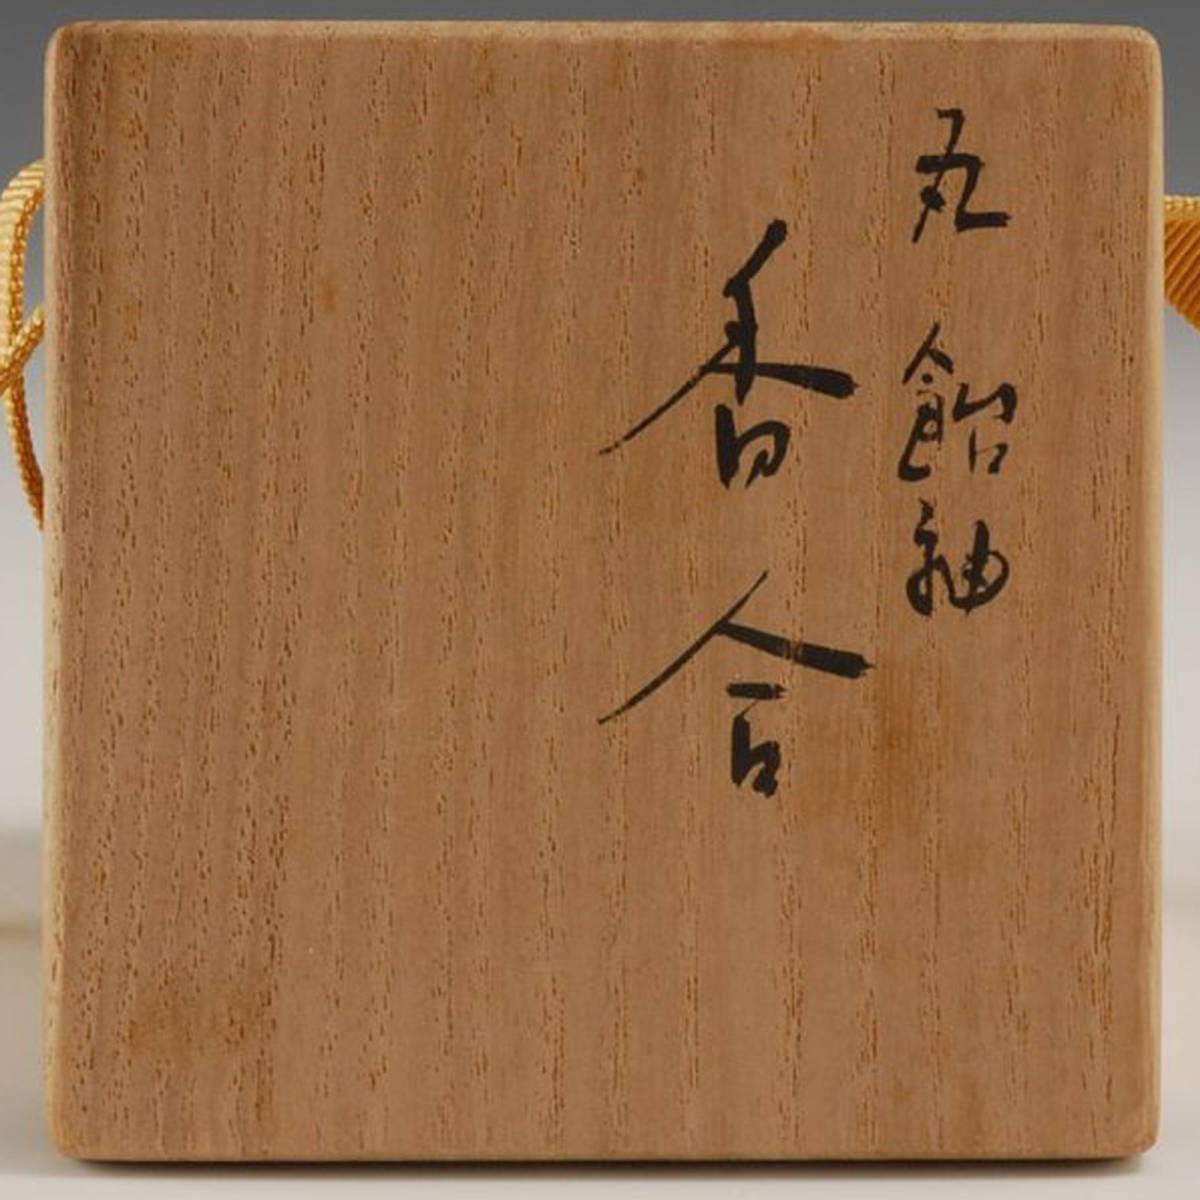 丸 飴釉
香合